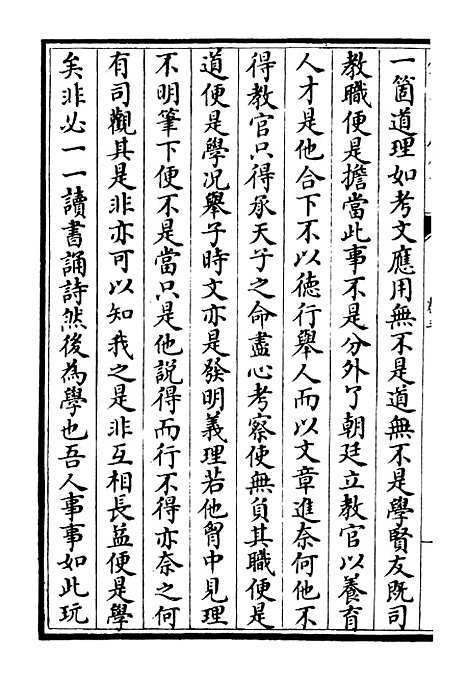 一箇道理如考文應用無不是道無不是學賢友既司
教職便是擔當此事不是分外了朝廷立教官以養育
人才是他合下不以德行舉人而以文章進奈何他不
得教官只得承天子之命盡心考察使無負其職便是
道便是學况舉子時文亦是發明義理若他胷中見理
不明筆下便不是當只是他説得而行不得亦奈之何
有司觀其是非亦可以知我之是非互相長益便是學
矣非必一一讀書誦詩然後為學也吾人事事如此玩